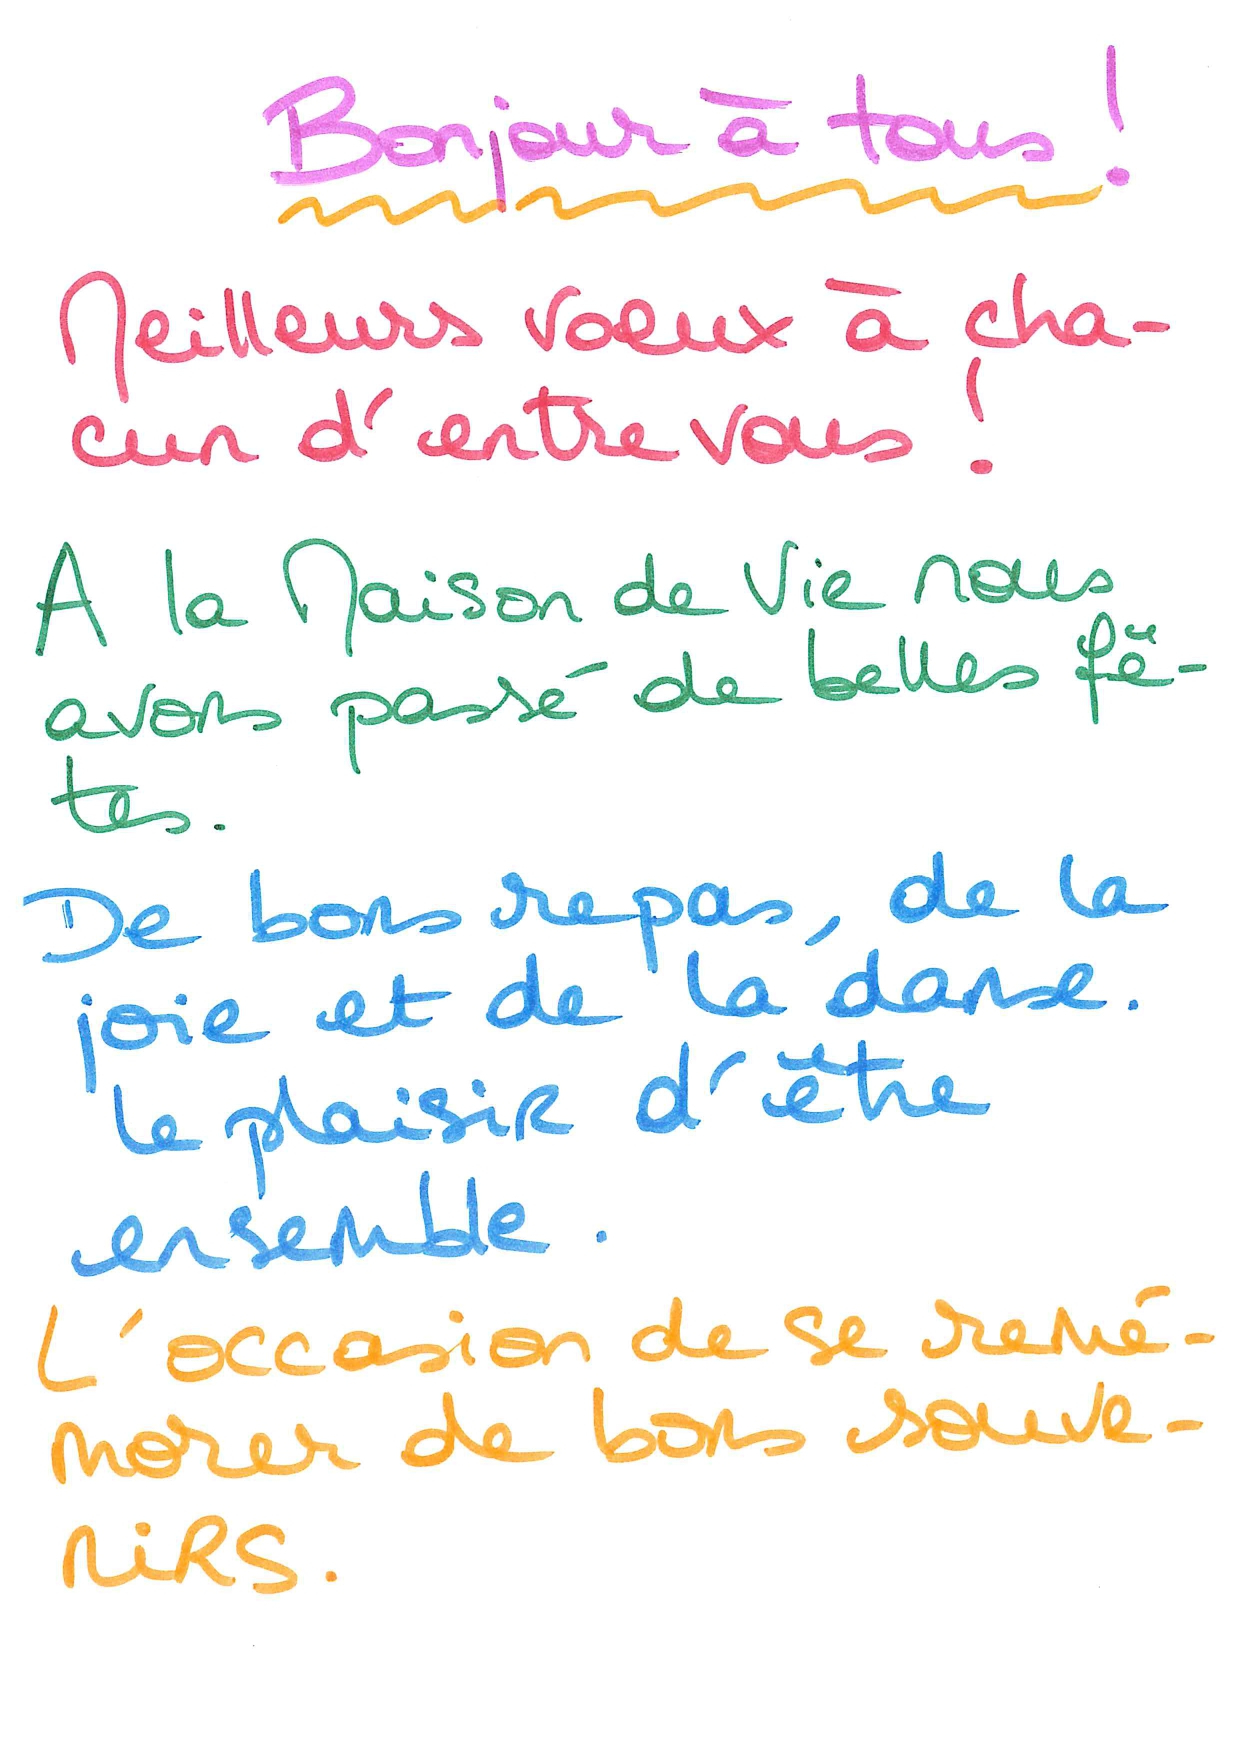 Bonjour à tous !
Meilleurs voeux à cha-
cun d'entre vous !
A la Maison de Vie nous
avons passé de belles fê-
tes.
De bons repas, de la
joie et de la danse.
Le plaisir d'être
ensemble.
L'occasion de se remé-
morer de bons souve-
nirs.